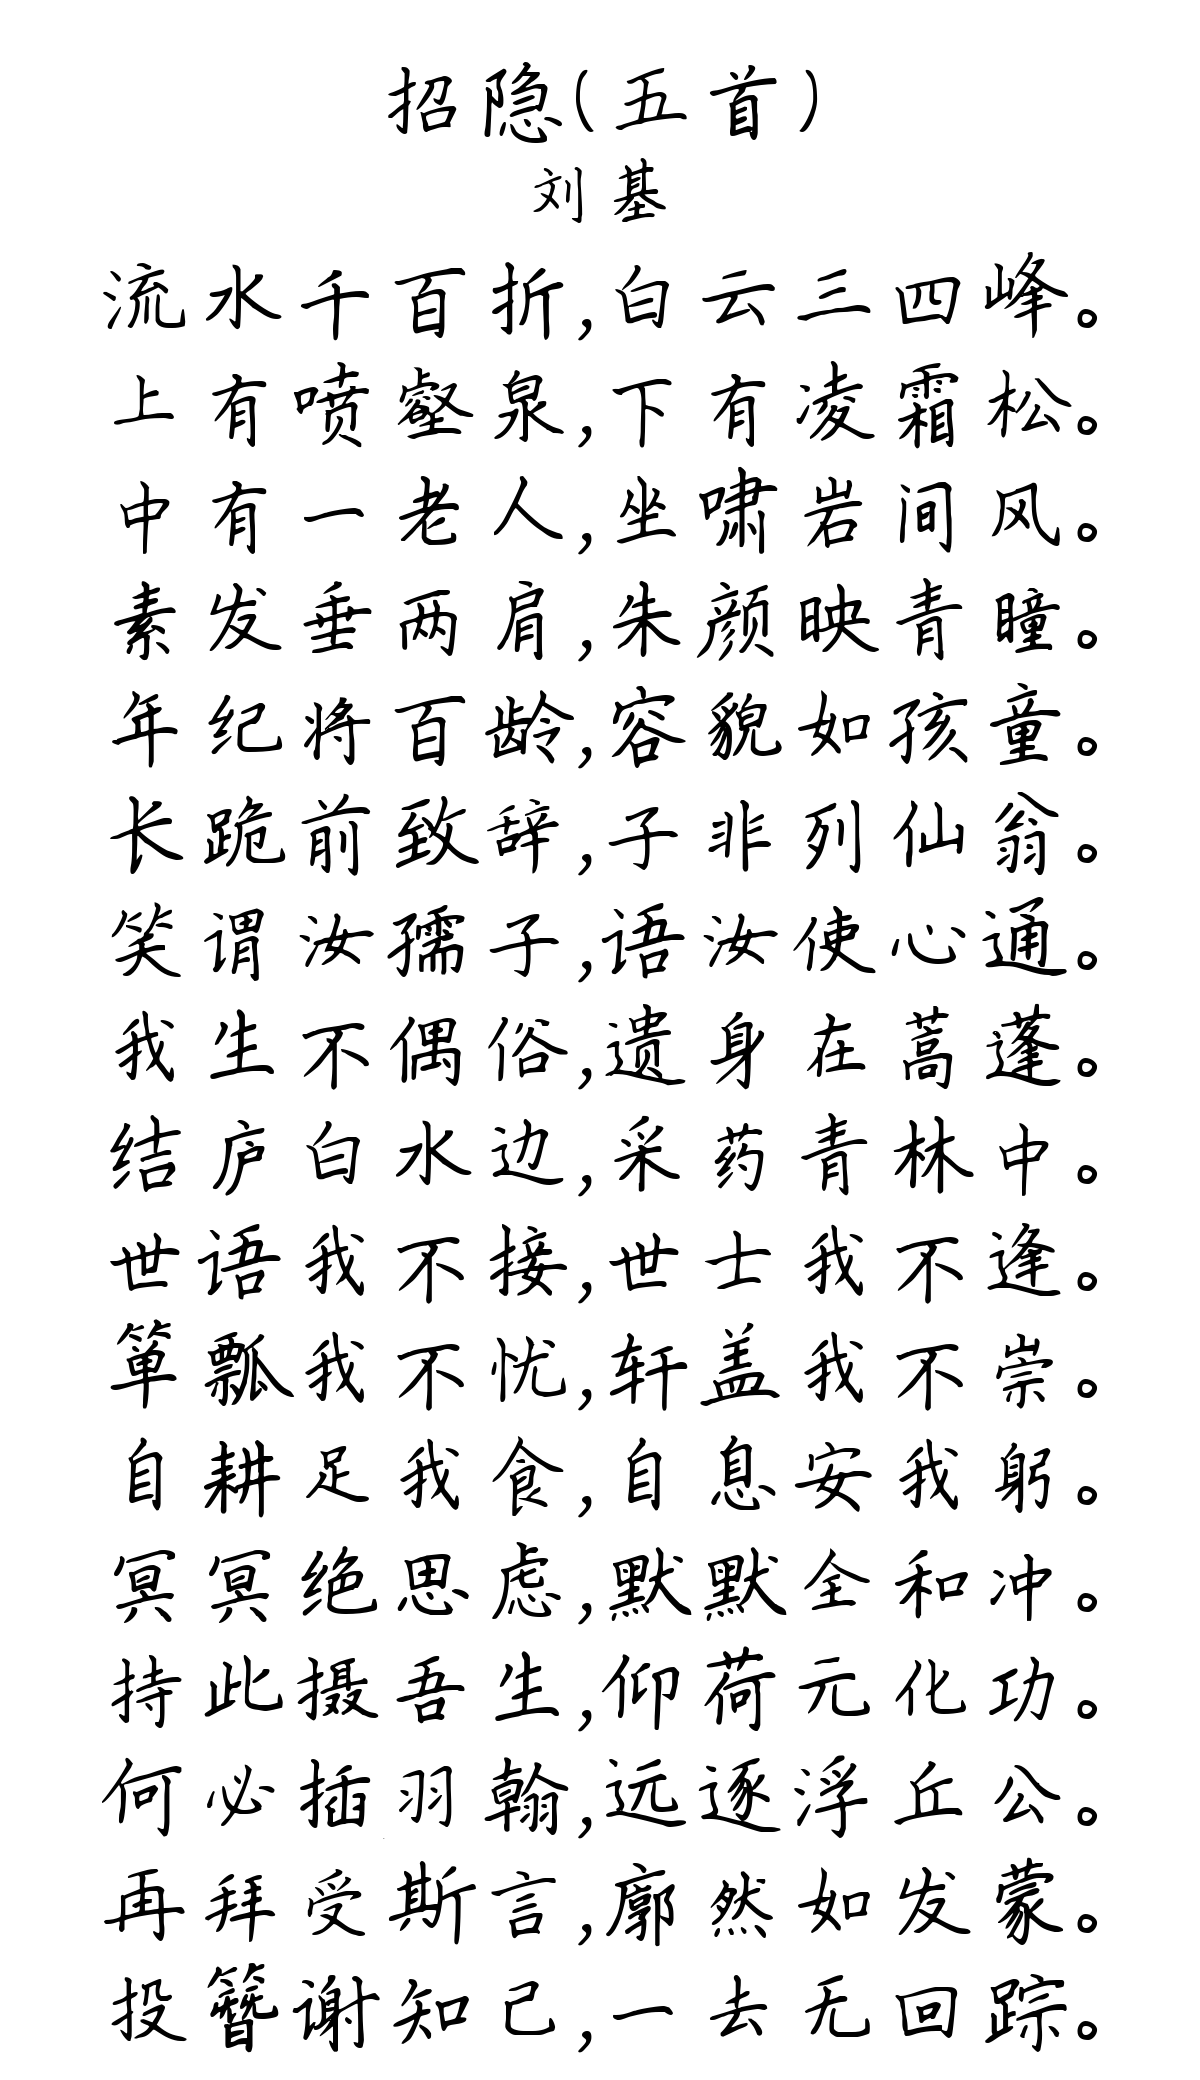 招隐(五首)
刘基
流水千百折,白云三四峰。
上有喷壑泉,下有凌霜松。
中有一老人,坐啸岩间风。
素发垂两肩,朱颜映青瞳。
年纪将百龄,容貌如孩童。
长跪前致辞,子非列仙翁。
笑谓汝孺子,语汝使心通。
我生不偶俗,遗身在蒿蓬。
结庐白水边,采药青林中。
世语我不接,世士我不逢。
箪瓢我不忧,轩盖我不崇。
自耕足我食,自息安我躬。
冥冥绝思虑,默默全和冲。
持此摄吾生,仰荷元化功。
何必插羽翰,远逐浮丘公。
再拜受斯言,廓然如发蒙。
投簪谢知己,一去无回踪。